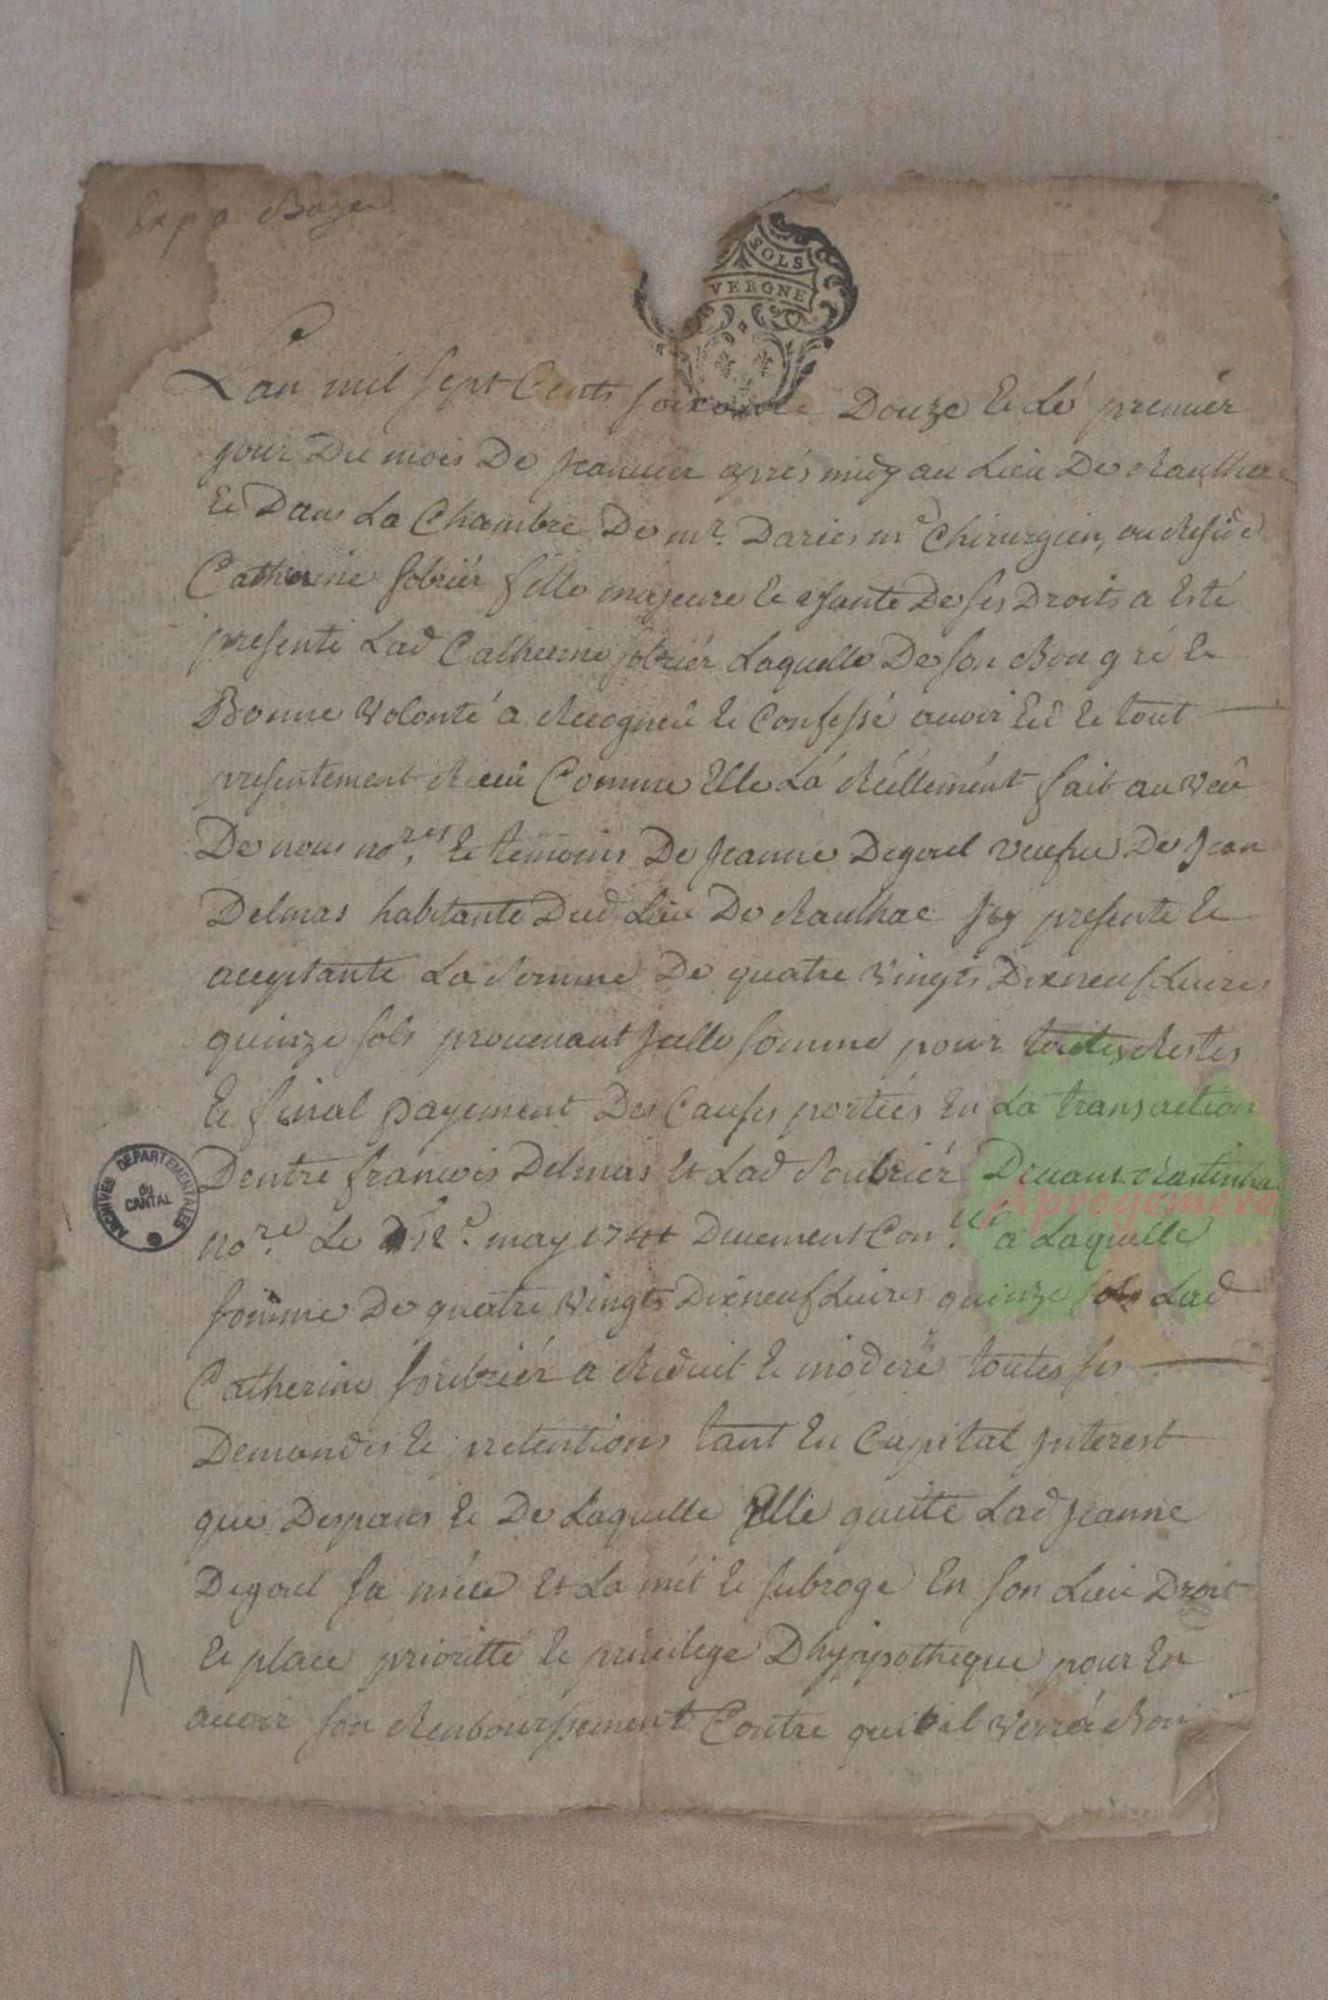 Expo Boyer
SOLS
VERGNE
Lan mil sept Cents soixante Douze & Lé premiér
jour Du mois De Jeanvier aprés midy au Lieu De Raulhac
& Dans La Chambre De mr. Daries me Chirurgien, ou Reside
Catherine sobriér fille majeure & usante De ses Droits a Esté
presente Lad Catherine sobriér Laquelle De son Bon gré &
Bonne Volonté a Recogneu & Confessé avoir Eû & tout
presentement Receu Comme Elle La Réellemént fait au Veû
De nous nores. & temoins De Jeanne Degoul veufve De Jean
Delmas habitante Dud Lieu De Raulhac Jcy presente &
aceptante La somme De quatre Vingts Dixneuf Livres
quinze sols provenant Jcelle somme pour toutes Restes
& final payement Des Causes portées En La transaction
Dentre francois Delmas Et Lad Soubriér Devant Rastinhac
nore. Le 12e. may 1741 Duement Conlée a Laquelle
somme De quatre Vingts Dixneuf Livres quinze sols Lad
Catherine soubriér a Reduit & moderé toutes ses
Demandes & pretentions tant En Capital Jnterest
que Despans & De Laquelle Elle quitte Lad Jeanne
Degoul sa niéce Et La mét & subroge En son Lieu Droit
& place prioritté & privilege Dhyppotheque pour En
avoir son Remboursement Contre qui il Verra Bon
ARCHIVES DEPARTEMENTALES
DU
CANTAL
Aprogemere